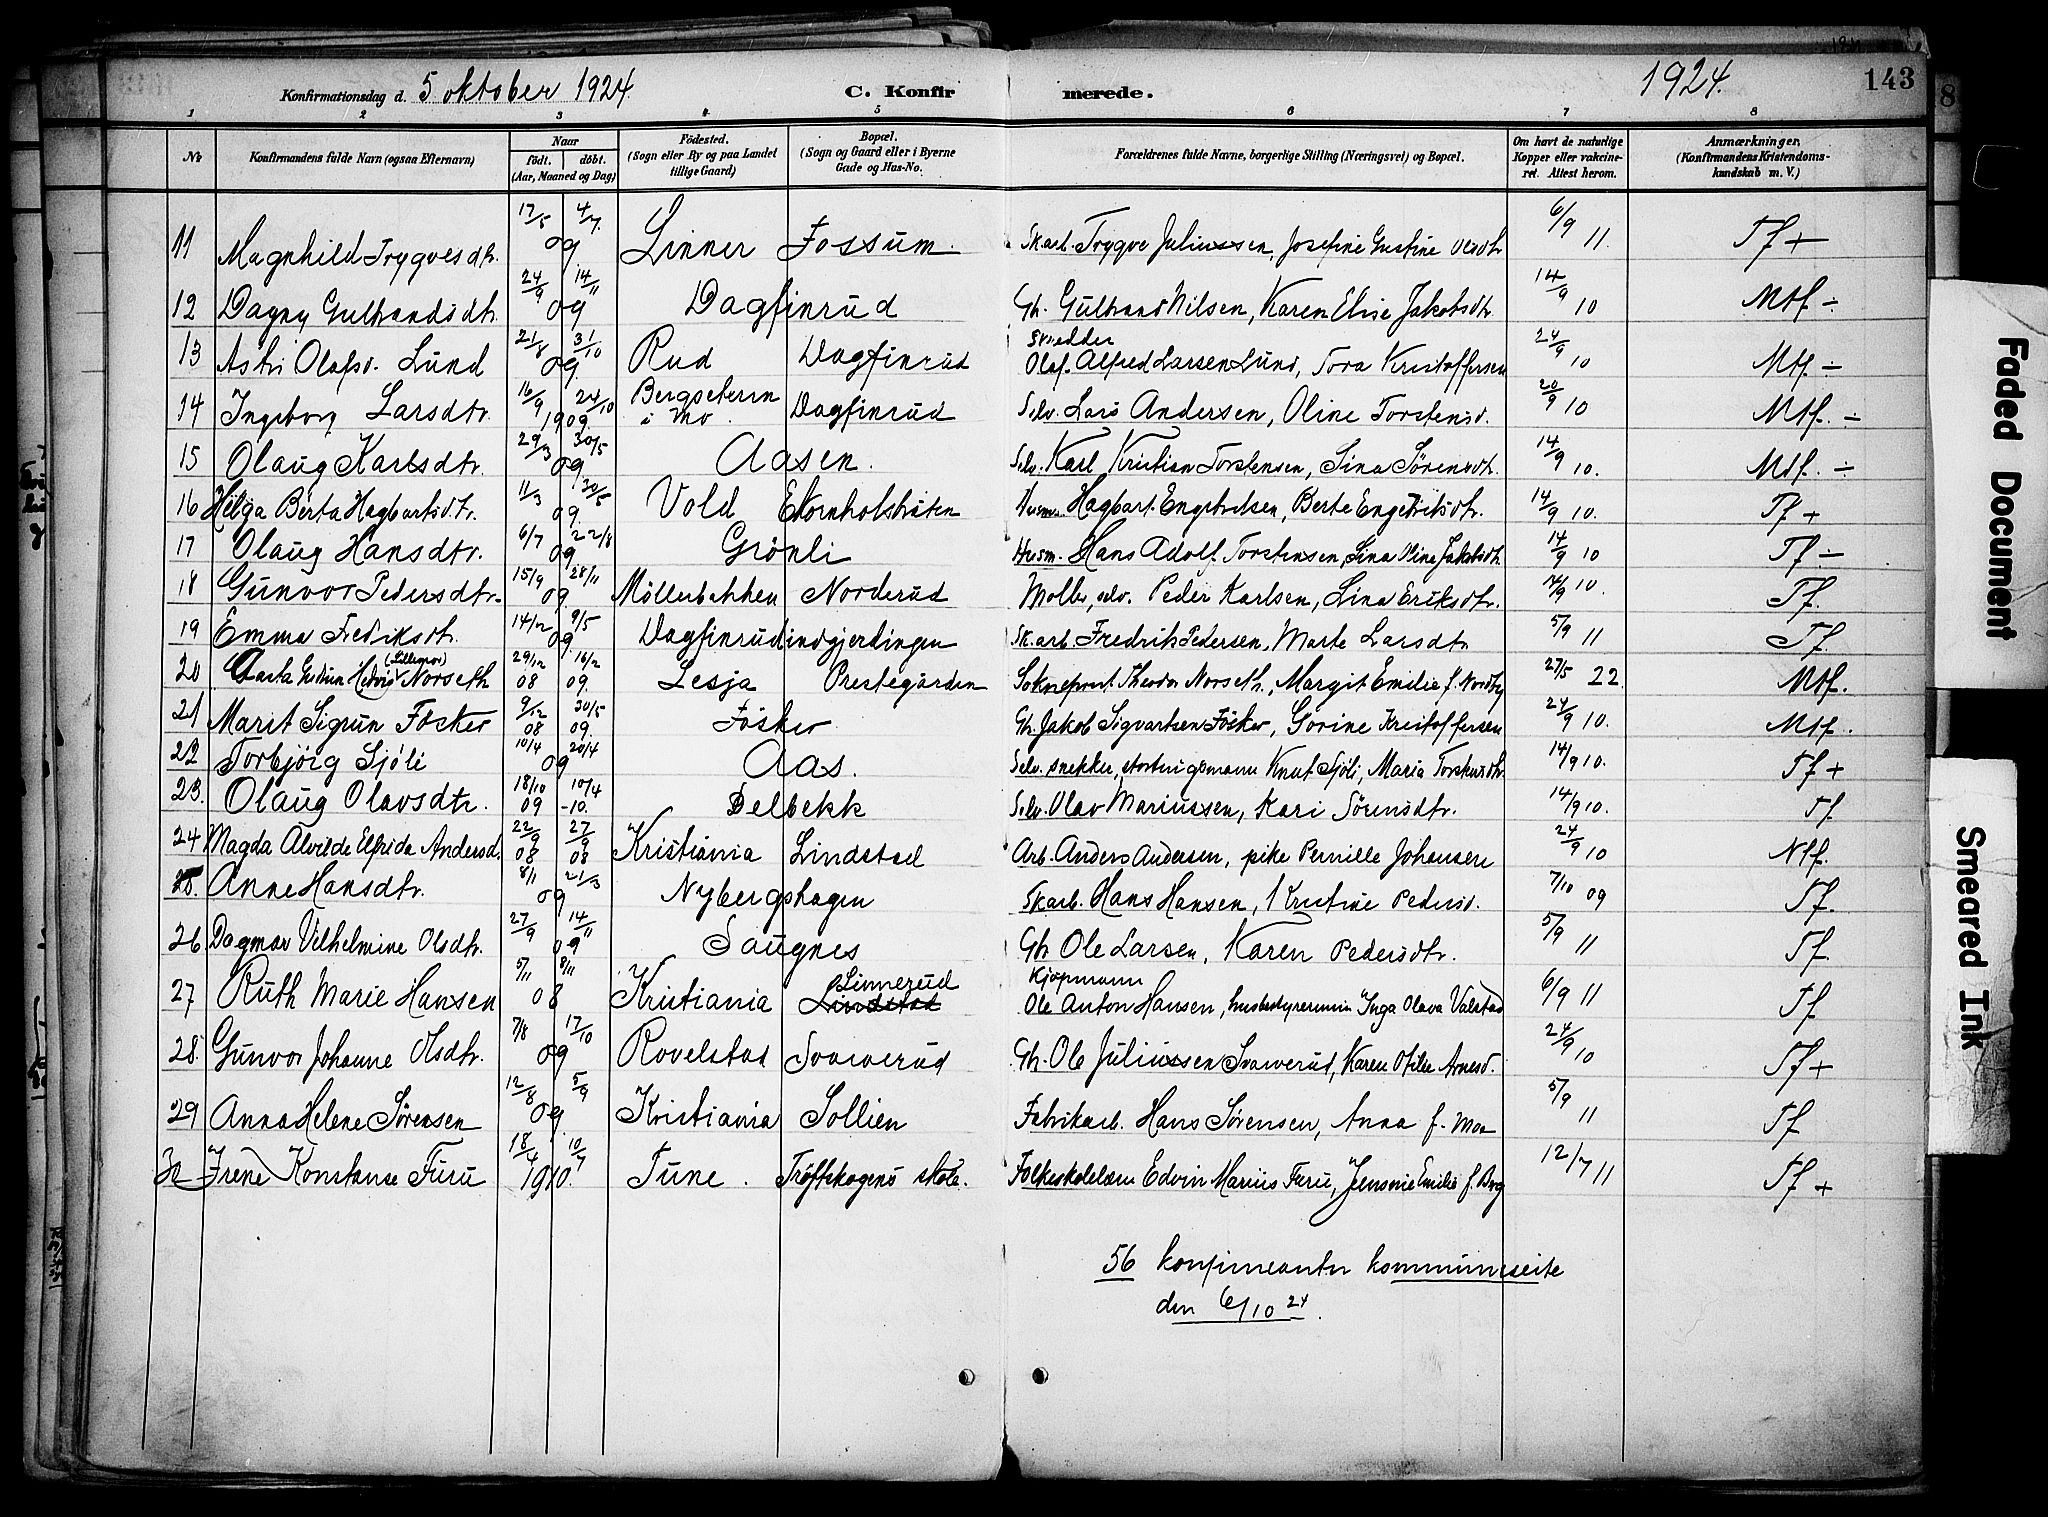 1924. 143
Konfirmationsdag d. 5 oktober 1924. C. Konfirmerede.
1 2 3 4 5 6 7 8
No Konfirmandens fulde Navn (ogsaa Efternavn) Naar født. døbt. (Aar, Maaned og Dag) Födested. (Sogn eller By og paa Landet tillige Gaard) Bopæl. (Sogn og Gaard eller i Byerne Gade og Hus-No. Forældrenes fulde Navne, borgerlige Stilling (Næringsvei) og Bopæl. Om havt de naturlige Kopper eller vakcineret. Attest herom. Anmærkninger, (Konfirmandens Kristendomskundskab m. V.)
11 Magnhild Trygvesdtr. 17/5 4/7. 09 Linner Fossum. Skarb. Trygve Juliussen, Josefine Gustine Olsdtr 6/9 11. Tf +
12 Dagny Gulbrandsdtr. 24/9 14/11 09 Dagfinrud Gb. Gulbrand Nilsen, Karen Elise Jakobsdtr. 14/9 10 Mtf ÷
13 Astri Olafsd. Lund 21/8 31/10 09. Rud Dagfinrud Snedker Olaf Alfred Larsen Lund, Tora Kristoffersen 24/9 10 Mtf. ÷
14 Ingeborg Larsdtr. 16/9 24/10 1909. Bergseteren i Mo. Dagfinrud Selv. Lars Andersen, Oline Torstensd. 20/9 10 Mtf. ÷
15 Olaug Karlsdtr. 29/3 30/5 09 Aasen. Selv. Karl Kristian Torstensen, Lina Sörensdtr. 14/9 10. Mtf. ÷
16 Helga Berta Hagbartsdtr. 11/3 30/5 09. Vold Ekornholshaten Husm. Hagbart Engebretsen, Berte Engebretsdtr. 14/9 10. Tf +
17 Olaug Hansdtr. 6/7 22/8 09 Grönli Husm. Hans Adolf Torstensen, Lina Oline Jakobsdtr. 14/9 10 Tf ÷
18 Gunvor Pedersdtr. 15/9 28/11 09. Möllerbakken Norderud Möller, selv. Peder Karlsen, Lina Eriksdtr. 14/9 10. Tf.
19 Emma Fredriksdtr. 14/2 9/5 09. Dagfinrudindgjerdingen Sk.arb. Fredrik Pedersen, Marte Larsdtr 5/9 11 Tf.
20 Aasta Gudrun Hedvig (Lillemor) Norseth 29/12 08 16/2 09. Lesja Prestegården Sokneprest Theodor Norseth, Margit Emilie f. Nordby 27/5 22. Mtf.
21 Marit Sigrun Fösker 9/12 08 30/5 09. Fösker Gb. Jakob Sigvartsen Fösker, Gorine Kristoffersen 24/9 10. Mtf.
22 Torbjörg Sjöli 10/4 20/4 09 Aas. Selv. snekker, stortingsmann Knut Sjöli, Maria Torstensdtr. 14/9 10. Tf +
23. Olaug Olavsdtr. 18/10 09 10/4 -10. Delbekk Selv. Olav Mariussen, Kari Sörensdtr. 14/9 10. Tf.
24 Magda Alvilde Elfrida Andersd. 22/9 08 27/9 08 Kristiania Lindstad Arb. Anders Andersen, pike Pernille Johansen 24/9 10 Ntf.
25. Anne Hansdtr. 8/1 21/3 09 Nybergshagen Skarb. Hans Hansen, Kristine Pedersd. 7/10 09 Tf.
26. Dagmar Vilhelmine Olsdtr. 27/9 14/11 09 Saugnes Gbr Ole Larsen, Karen Pedersdtr. 5/9 11 Tf.
27 Ruth Marie Hansen 5/11 8/11 08 Kristiania Linnerud Lindstad Kjöpmann Ole Anton Hansen, husbestyrerinne Inga Olava Valstad 6/9 11 Tf.
28. Gunvor Johanne Olsdtr. 7/8 17/10 09 Rovelstad Svarverud Gb. Ole Juliussen Svarverud, Karen Otilie Arnesd. 24/9 10 Tf +
29 Anna Helene Sørensen 12/8 5/9 09. Kristiania Sollien Fabrikarb. Hans Sørensen, Anna f. Moa 5/9 11 Tf
30 Irene Konstanse Furu 18/4 10/7 1910. Tune. Tröftskogens skole. Folkeskolelærer Edvin Marius Furu, Jensine Emilie f. Berg 12/7 11 Tf +
56 konfirmanter kommuniserte
den 6/10 24.
Faded Document
Smeared Ink